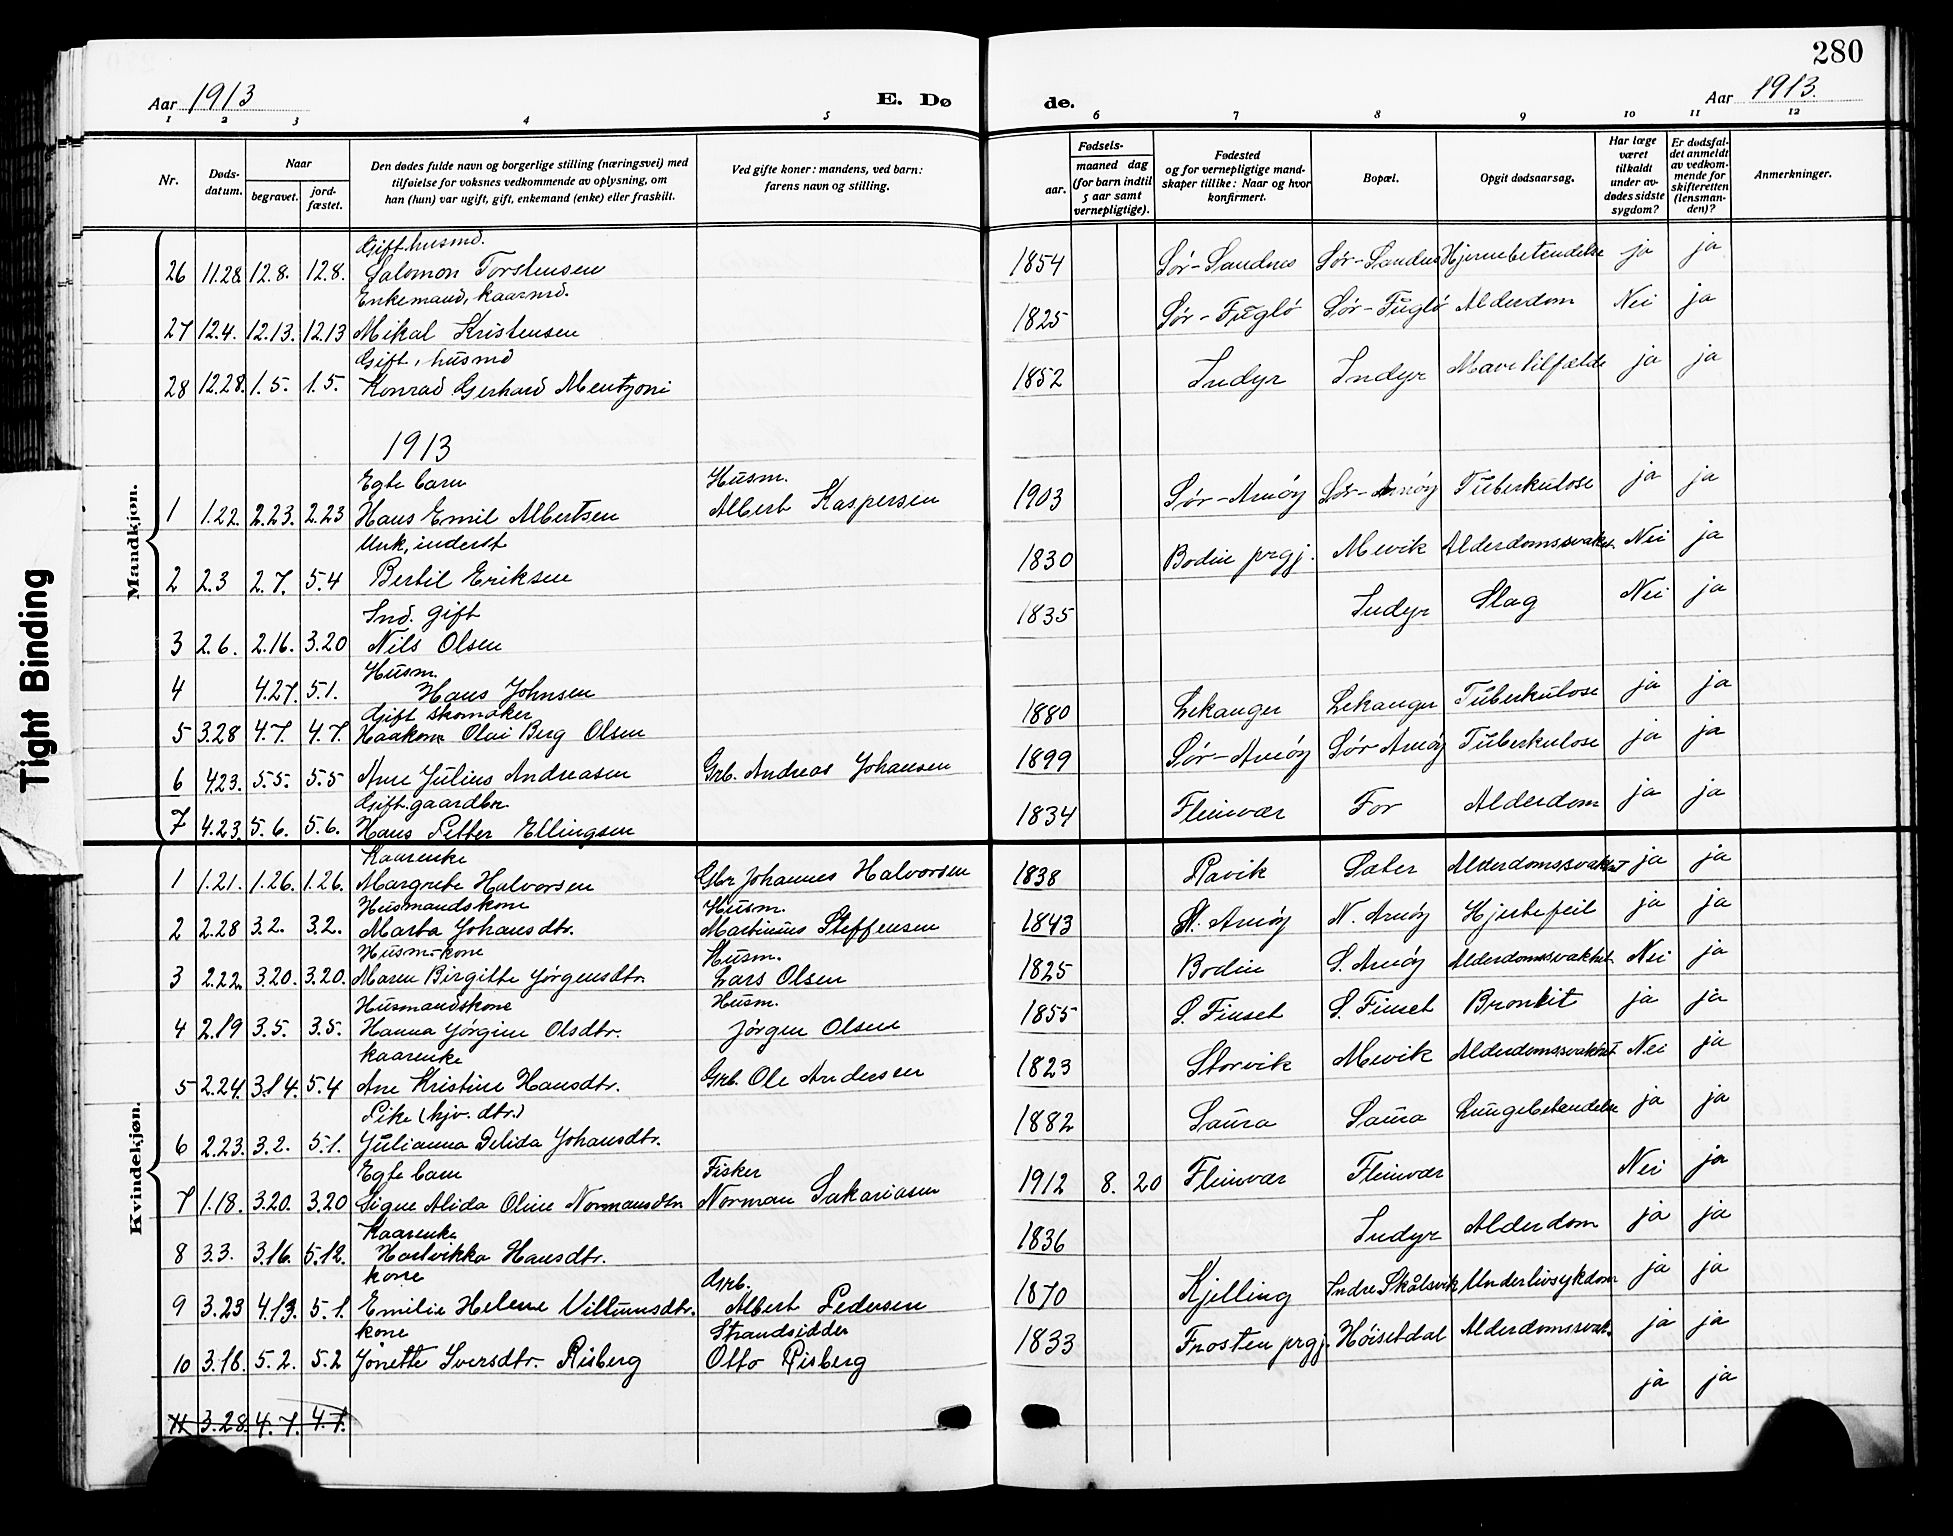 280
Aar 1913 E. Dø de. Aar 1913.
1 2 3 4 5 6 7 8 9 10 11 12
Nr. Døds-datum. Naar begravet. jord-fæstet. Den dødes fulde navn og borgerlige stilling (næringsvei) med tilføielse for voksnes vedkommende av oplysning, om han (hun) var ugift, gift, enkemand (enke) eller fraskilt. Ved gifte koner: mandens, ved barn: farens navn og stilling. Fødsels- aar. maaned dag (for barn indtil 5 aar samt vernepligtige). Fødested og for vernepligtige mand-skaper tillike: Naar og hvor konfirmert. Bopæl. Opgit dødsaarsag. Har læge været tilkaldt under av-dødes sidste sygdom? Er dødsfal-det anmeldt av vedkom-mende for skifteretten (lensman-den)? Anmerkninger.
Gift husmd.
26 11.28 12.8. 12.8. Salomon Torstensen 1854 Sør-Sandnes Sør-Sandnes Hjernebetendelse ja ja
Enkemand, kaarmd.
27 12.4. 12.13. 12.13 Mikal Kristensen 1825 Sør-Fuglö Sør-Fuglö Alderdom Nei ja
Gift, husmd
28 12.28. 1.5. 1.5. Konrad Gerhard Mentzoni 1852 Indyr Indyr Mavetilfælde ja ja
1913
Mandkjøn.
Egte barn Husm.
1 1.22. 2.23. 2.23 Hans Emil Albertsen Albert Kaspersen 1903 Sør-Arnöy Sør-Arnöy Tuberkulose ja ja
Unk, inderst
2 2.3 2.7. 5.4 Bertil Eriksen 1830 Bodin prgj. Mevik Alderdomssvakh. Nei ja
Ind. gift
3 2.6. 2.16. 3.20 Nils Olsen 1835 Indyr Slag Nei ja
Husm.
4 4.27. 5.1. Hans Johnsen
Gift skomaker
5 3.28 4.7. 4.7. Haakon Olai Berg Olsen 1880 Lekanger Lekanger Tuberkulose ja ja
6 4.23. 5.5. 5.5 Arne Julius Andreasen Grb. Andreas Johansen 1899 Sør-Arnöy Sør Arnöy Tuberkulose ja ja
Gift. gaardbr.
7 4.23. 5.6. 5.6. Hans Petter Ellingsen 1834 Fleinvær For Alderdom ja ja
Kvindekjøn.
Kaarenke
1 1.21. 1.26. 1.26. Margrete Halvorsen Gbr Johannes Halvorsen 1838 Ravik Sater Alderdomssvakhet ja ja
Husmandskone Husm.
2 2.28 3.2. 3.2. Marta Johansdtr. Martinius Steffensen 1843 N. Arnöy N. Arnöy Hjertefeil ja ja
Husm-kone Husm.
3 2.22. 3.20. 3.20. Maren Birgitte Jörgensdtr. Lars Olsen 1825 Bodin S. Arnöy Alderdomssvakhet Nei ja
Husmandskone Husm.
4 2.19 3.5. 3.5. Hanna Jörgine Olsdtr. Jörgen Olsen 1855 S. Finset S. Finset Bronkit ja ja
kaarenke
5 2.24. 3.14. 5.4 Ane Kristine Hansdtr. Grb. Ole Andersen 1823 Storvik Mevik Alderdomssvakhet Nei ja
Pike (hjv. dtr.)
6 2.23. 3.2. 5.1. Julianna Delida Johansdtr. 1882 Saura Saura Lungebetendelse ja ja
Egte barn Fisker
7 1.18. 3.20. 3.20 Signe Alida Oline Normansdtr Norman Sakariasen 1912 8. 20 Fleinvær Fleinvær Nei ja
Kaarenke
8 3.3. 3.16. 5.12. Hartvikka Hansdtr. 1836 Indyr Alderdom ja ja
kone Grb.
9 3.23 4.13. 5.1. Emilie Helene Villumsdtr. Albert Pedersen 1870 Kjelling Indre Skålsvik Underlivsykdom ja ja
kone Strandsidder
10 3.18. 5.2. 5.2 Jonette Iversdtr. Risberg Otto Risberg 1833 Frosten prgj. Höisetdal Alderdomssvak. ja ja
11 3.28. 4.7. 4.7. ja ja
Tight Binding